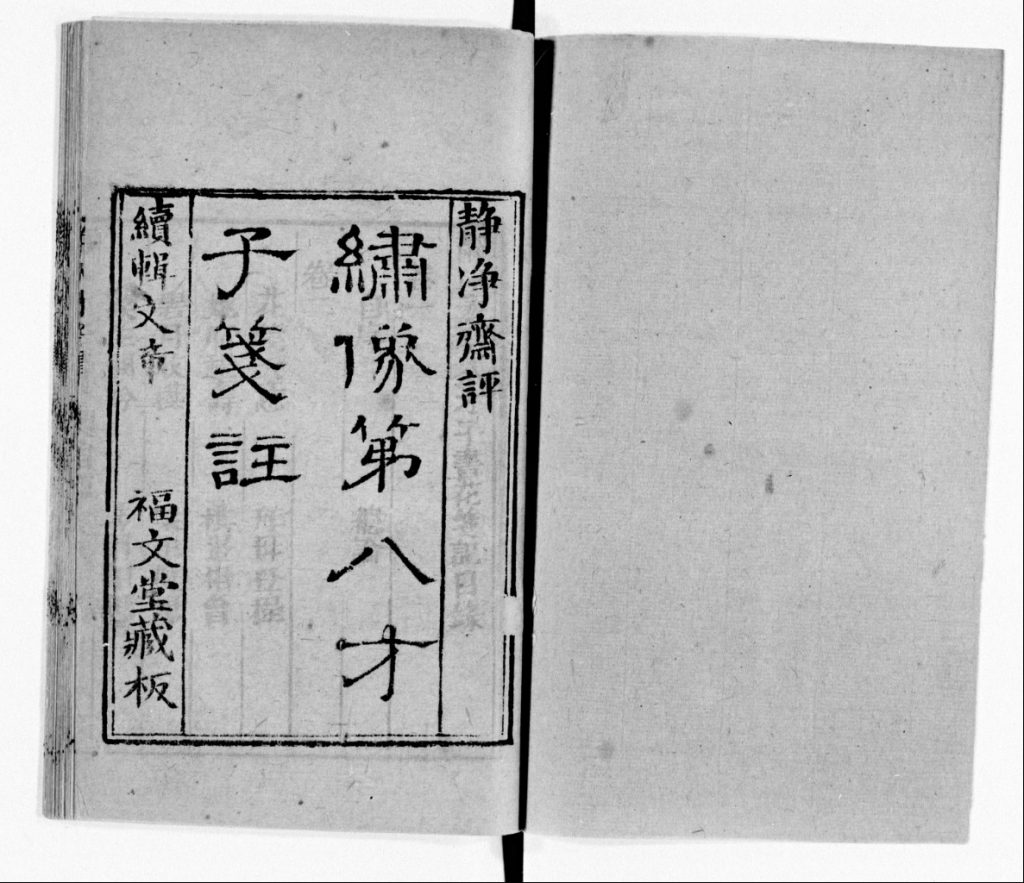 静净齋評
繡像第八才
子箋註
續輯文章
福文堂藏板